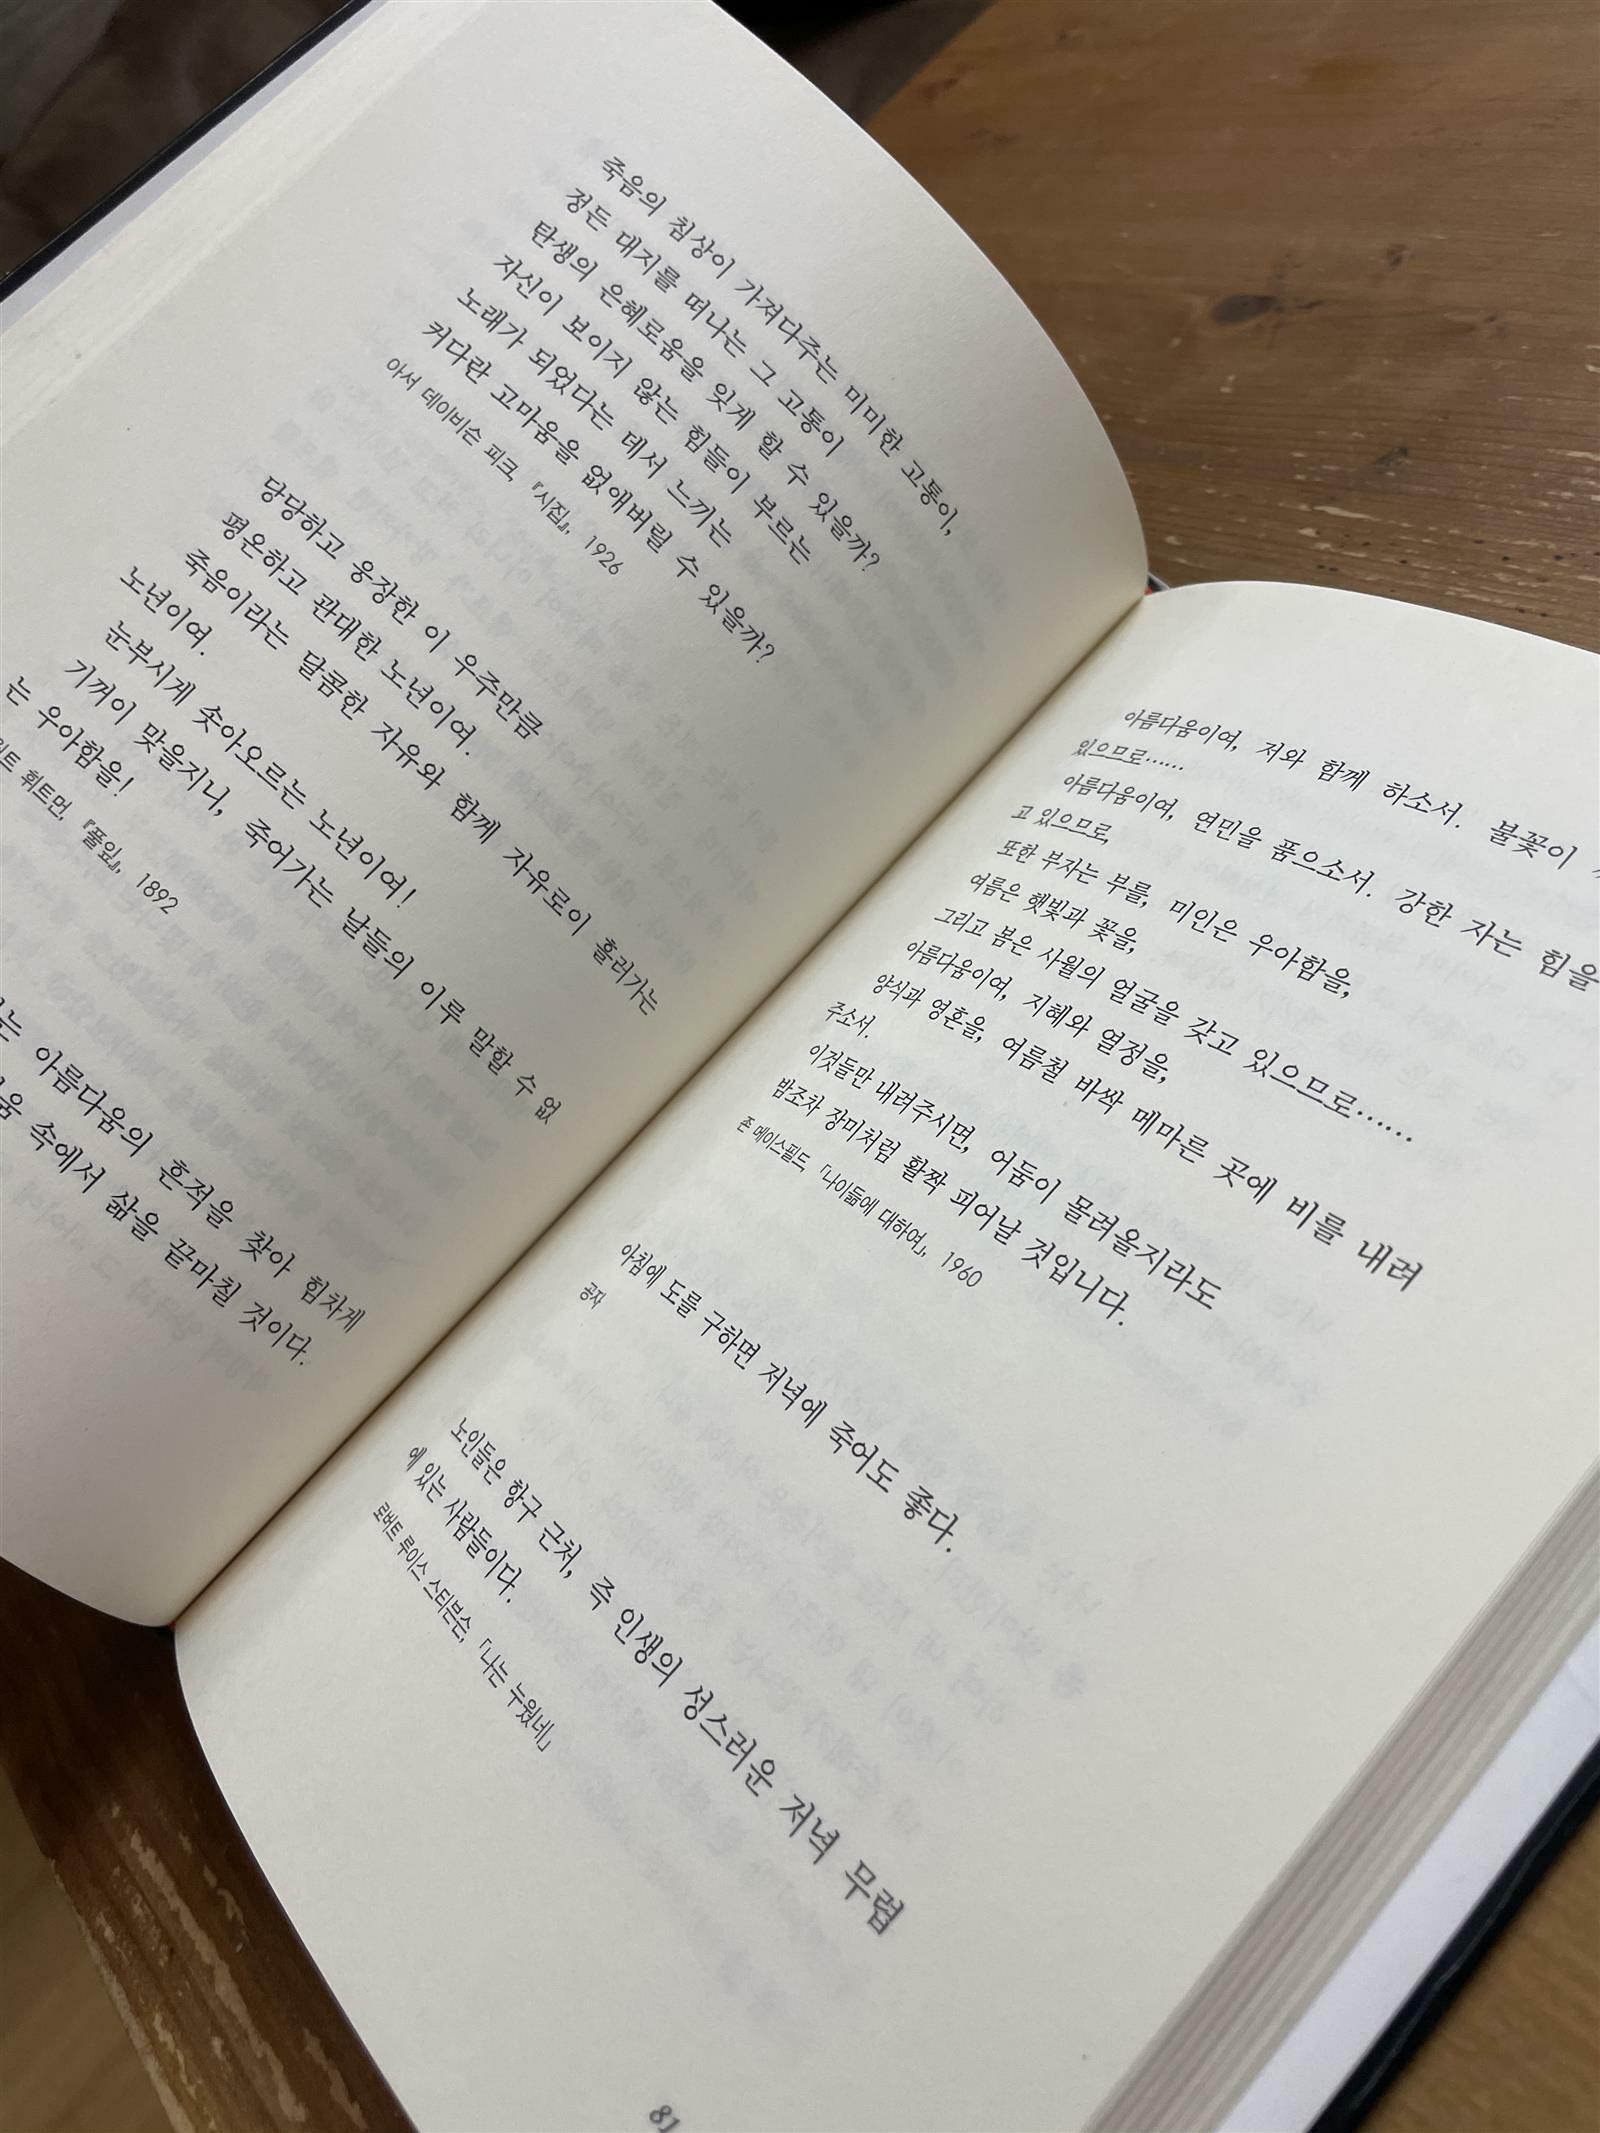 죽음의 침상이 가져다주는 미미한 고통이,
정든 대지를 떠나는 그 고통이
탄생의 은혜로움을 잊게 할 수 있을까?
자신이 보이지 않는 힘들이 부르는
노래가 되었다는 데서 느끼는
커다란 고마움을 없애버릴 수 있을까?
아서 데이비슨 피크, 『시집』, 1926
당당하고 웅장한 이 우주만큼
평온하고 관대한 노년이여.
죽음이라는 달콤한 자유와 함께 자유로이 흘러가는
노년이여.
눈부시게 솟아오르는 노년이여!
기꺼이 맞을지니, 죽어가는 날들의 이루 말할 수 없
는 우아함을!
휘트먼, 『풀잎』, 1892
아름다움의 흔적을 찾아 힘차게
속에서 삶을 끝마칠 것이다.
아름다움이여, 저와 함께 하소서. 불꽃이
있으므로……
아름다움이여, 연민을 품으소서. 강한 자는 힘을
고 있으므로,
또한 부자는 부를, 미인은 우아함을,
여름은 햇빛과 꽃을,
그리고 봄은 사월의 얼굴을 갖고 있으므로……
아름다움이여, 지혜와 열정을,
양식과 영혼을, 여름철 바싹 메마른 곳에 비를 내려
주소서.
이것들만 내려주시면, 어둠이 몰려올지라도
밤조차 장미처럼 활짝 피어날 것입니다.
존 메이스필드, 「나이듦에 대하여」, 1960
아침에 도를 구하면 저녁에 죽어도 좋다.
공자
노인들은 항구 근처, 즉 인생의 성스러운 저녁 무렵
에 있는 사람들이다.
로버트 루이스 스티븐슨, 「나는 누웠네」
81